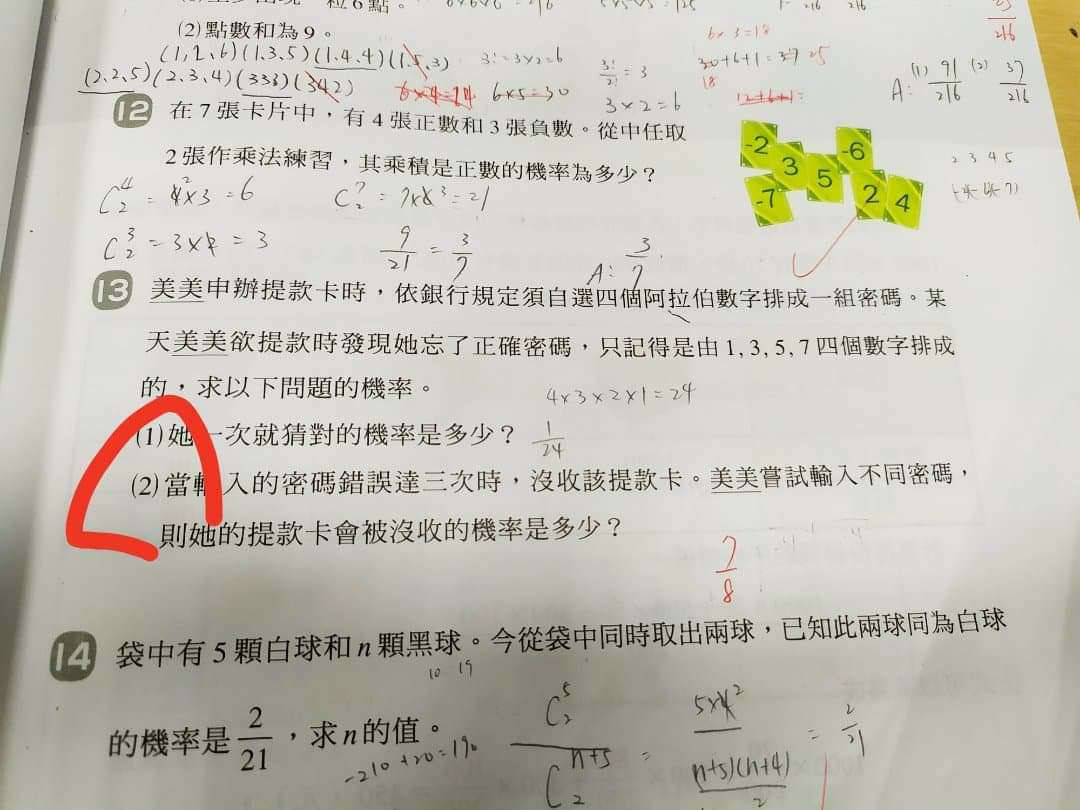 (2) 點數和為 9。
(1,2,6)(1,3,5)(1,4,4)(1,5,3) 3!=3×2=6
(2,2,5)(2,3,4)(333)(342) 6×4=24 6×5=30
3!/2! = 3
3×2=6
6×3=18
30+6+1=37 25
18
12+6+1=
A: (1) 91/216 (2) 37/216
12 在 7 張卡片中,有 4 張正數和 3 張負數。從中任取
2 張作乘法練習,其乘積是正數的機率為多少?
-2 3 5 -6 -7 2 4
2 3 4 5
C⁴₂ = 4²×3 = 6 C⁷₂ = 7×6³ = 21
C³₂ = 3×2 = 3 9/21 = 3/7 A: 3/7
13 美美申辦提款卡時,依銀行規定須自選四個阿拉伯數字排成一組密碼。某
天美美欲提款時發現她忘了正確密碼,只記得是由 1, 3, 5, 7 四個數字排成
的,求以下問題的機率。
4×3×2×1=24
(1) 她一次就猜對的機率是多少? 1/24
(2) 當輸入的密碼錯誤達三次時,沒收該提款卡。美美嘗試輸入不同密碼,
則她的提款卡會被沒收的機率是多少?
7/8
14 袋中有 5 顆白球和 n 顆黑球。今從袋中同時取出兩球,已知此兩球同為白球
10 19
的機率是 2/21,求 n 的值。
-210+20=190
C⁵₂ / Cⁿ⁺⁵₂ = 5×4² / (n+5)(n+4)/2 = 2/21